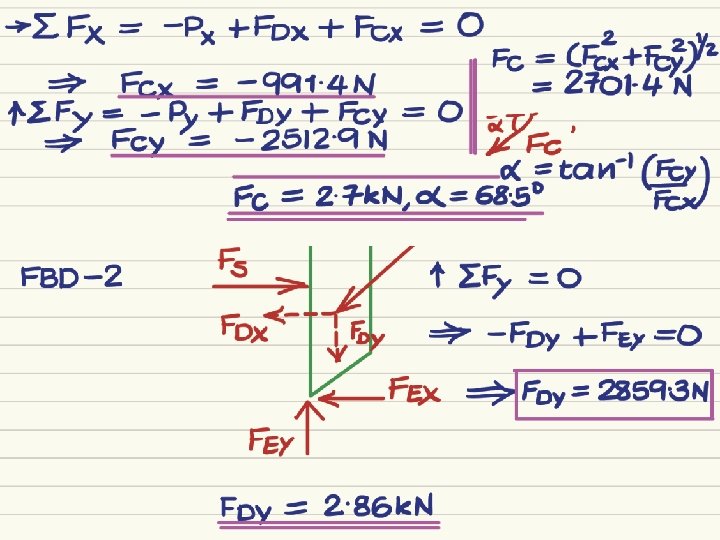 →ΣFx = -Px + FDx + FCx = 0
⇒ FCx = -991.4 N
↑ΣFy = -Py + FDy + FCy = 0
⇒ FCy = -2512.9 N
FC = (FCx² + FCy²)^½
= 2701.4 N
α FC'
α = tan⁻¹ (FCy/FCx)
FC = 2.7kN, α = 68.5°
FBD-2
FS
FDx
FDy
FEx
FEy
↑ ΣFy = 0
⇒ -FDy + FEy = 0
⇒ FDy = 2859.3N
FDy = 2.86kN